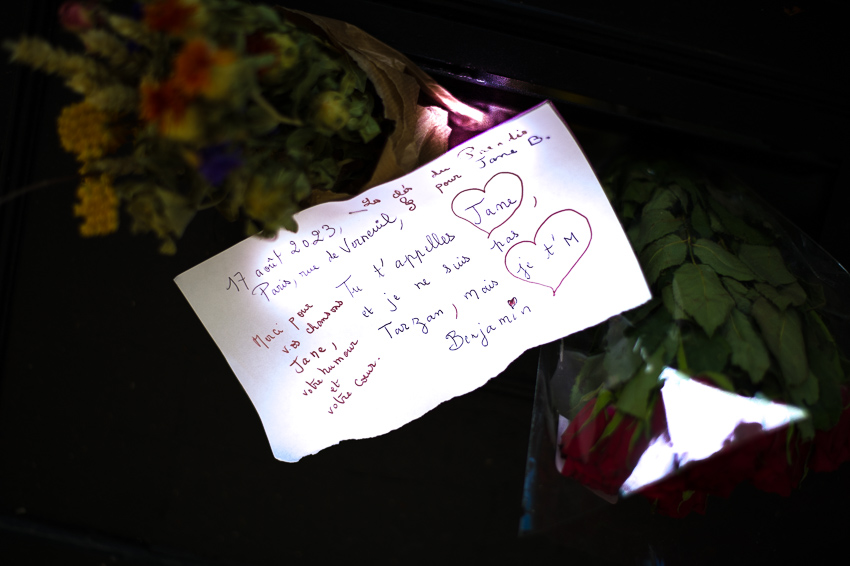 17 août 2023,
Paris, rue de Verneuil,
Les clés du Paradis
pour Jane B.
Tu t'appelles Jane,
et je ne suis pas
Tarzan, mais je t'M
Benjamin
Merci pour
vos chansons
Jane,
votre humour
et
votre cœur.